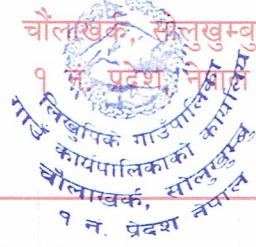 चौंलाखर्क, सोलुखुम्बु
१ नं. प्रदेश, नेपाल
लिखुपिके गाउँपालिका
गाउँ कार्यपालिकाको कार्यालय
चौलाखर्क, सोलुखुम्बु
१ नं. प्रदेश नेपाल